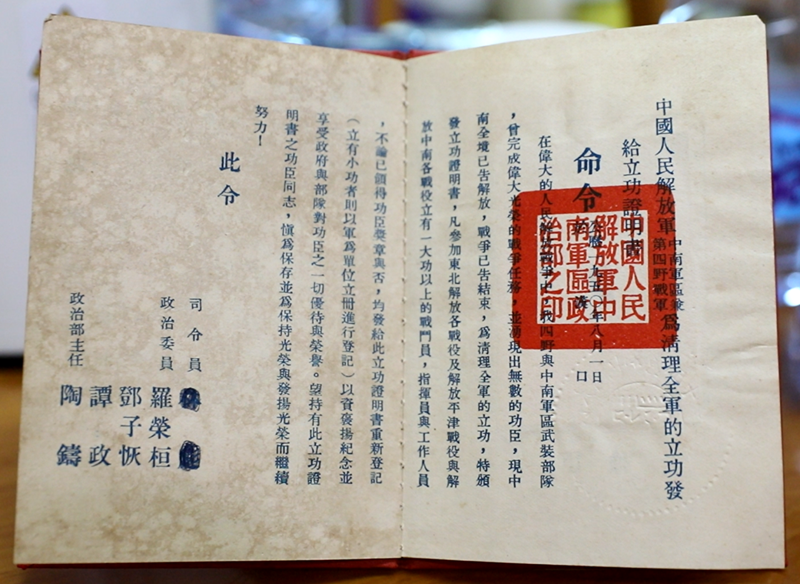 中國人民解放軍中南軍區兼第四野戰軍爲清理全軍的立功發
給立功證明書
命令
公曆一九五〇年八月一日
在偉大的人民解放戰爭中，我四野與中南軍區武裝部隊
，曾完成偉大光榮的戰爭任務，並湧現出無數的功臣，現中
南全境已告解放，戰爭已告結束，爲清理全軍的立功，特頒
發立功證明書，凡參加東北解放各戰役及解放平津戰役與解
放中南各戰役立有一大功以上的戰鬥員，指揮員與工作人員
，不論已領得功臣獎章與否，均發給此立功證明書重新登記
（立有小功者則以軍爲單位立冊進行登記）以資褒揚紀念並
享受政府與部隊對功臣之一切優待與榮譽。望持有此立功證
明書之功臣同志，愼爲保存並爲保持光榮與發揚光榮而繼續
努力！
此令
司令員
政治委員 羅榮桓
鄧子恢
譚政
政治部主任 陶鑄
中國人民
解放軍中
南軍區政
治部之印